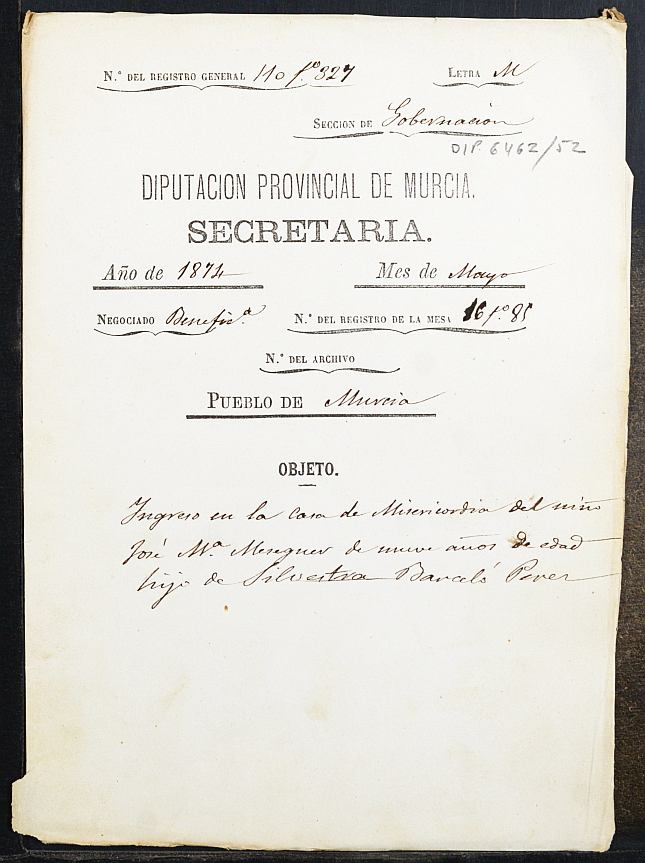 N.º DEL REGISTRO GENERAL 110 f.º 327 LETRA M
SECCION DE Gobernacion
DIP. 6462/52
DIPUTACION PROVINCIAL DE MURCIA.
SECRETARIA.
Año de 1874 Mes de Mayo
NEGOCIADO Benefic.ª N.º DEL REGISTRO DE LA MESA 16 f.º 85
N.º DEL ARCHIVO
PUEBLO DE Murcia
OBJETO.
Ingreso en la casa de Misericordia del niño
José M.ª Meseguer de nueve años de edad
hijo de Silvestra Barceló Perez